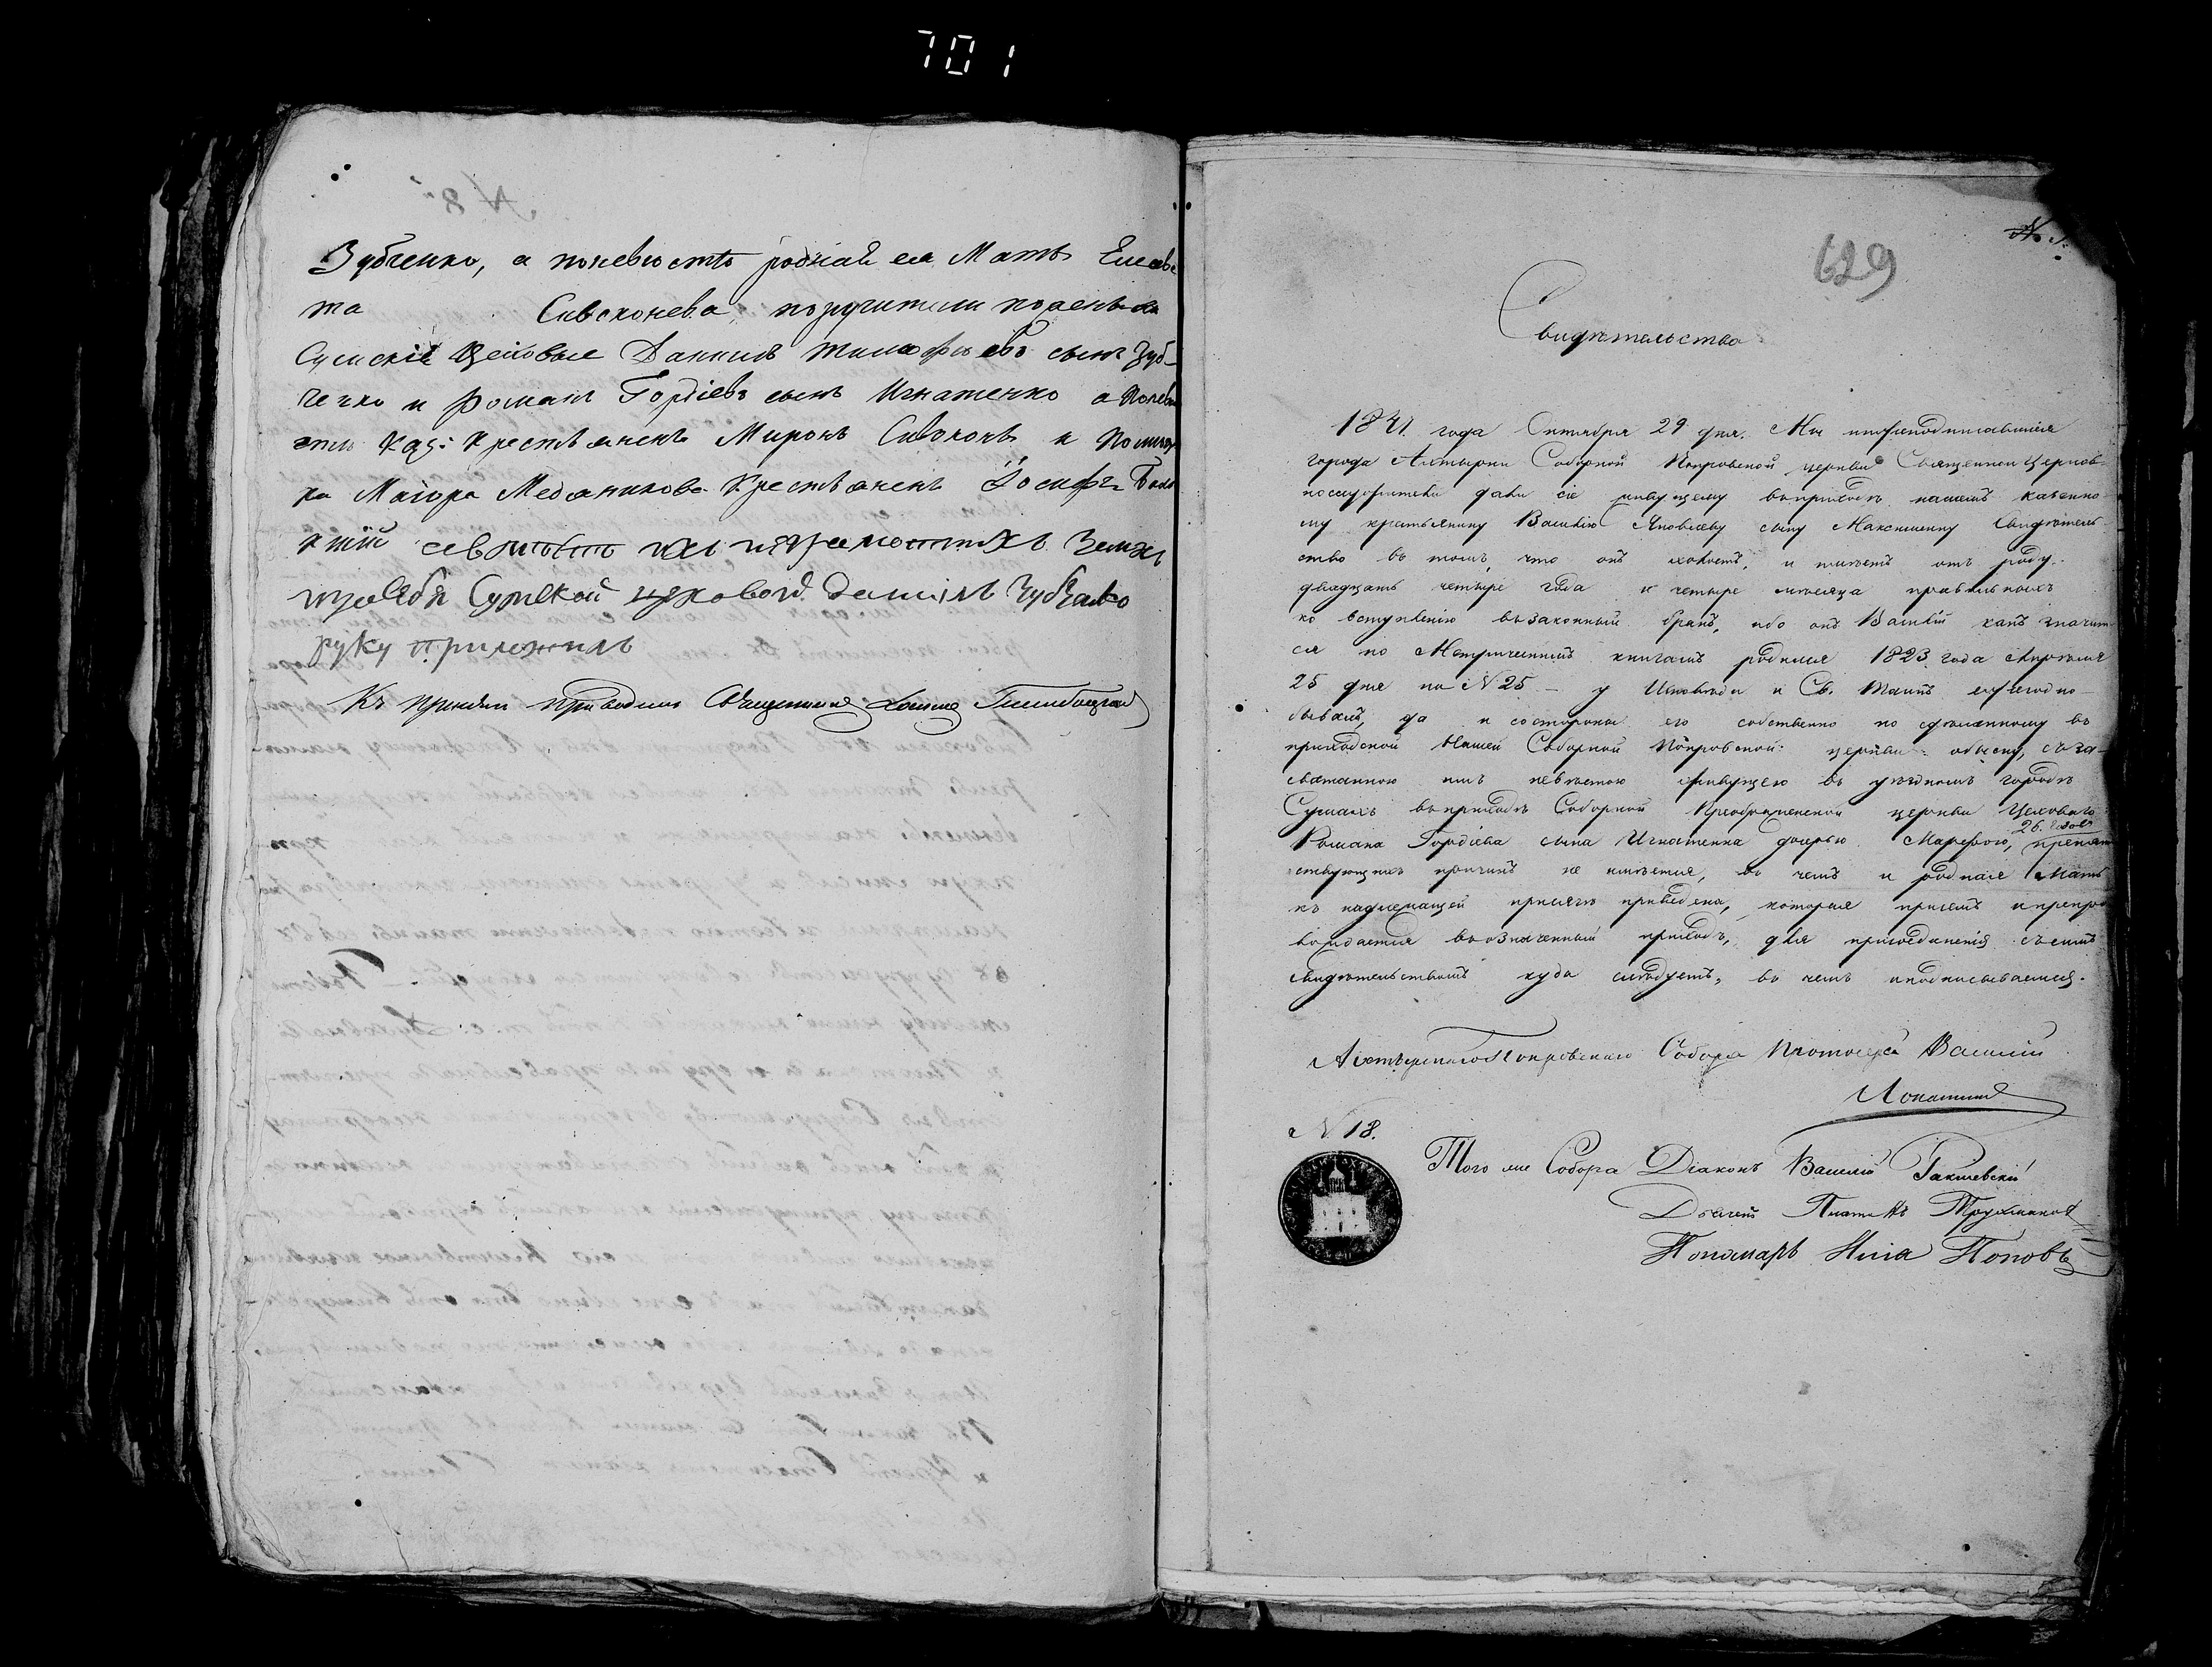 701
Зубченко, а поневѣстѣ родная ея Мать Елисаве
та Сивоконева, поручители поженихѣ
Сумскіе Цеховые Даніилъ Тимофѣевъ сынъ Зуб-
ченко и Романъ Гордіевъ сынъ Игнатенко а Поневѣ
стѣ Каз: крестьянинъ Миронъ Сивоконь и Помѣщи
ка Маіора Медяникова Крестьянинъ Іосифъ
руку приложилъ
Къ присягѣ приводилъ Священникъ
629
Свидѣтельство
1847 года Октября 29 дня. Мы нижеподписавшіеся
города Ахтырки Соборной Покровской церкви Священноцерков-
нослужители дали сіе живущему въприходѣ нашемъ казенно-
му крестьянину Василію Яковлеву сыну Максименку Свидѣтель-
ство въ томъ, что онъ холостъ, и имѣетъ отъ роду
двадцать четыре года и четыре мѣсяца правильныхъ
ко вступленію възаконный бракъ, ибо онъ Василій какъ значит
ся по Метрическимъ книгамъ родился 1823 года Апрѣля
25 дня по N 25 – у Исповѣди и Св. Таинъ ежегодно
бывалъ, да и состороны его собственно по сдѣланному въ
приходской Нашей Соборной Покровской церкви обыску, съза-
сватанною имъ невѣстою живущею въ уѣздномъ городѣ
Сумахъ въприходѣ Соборной Преображенской церкви Цеховаго
Романа Гордіева сына Игнатенка дочерью Марфою, 26. годовъ препят
ствующихъ причинъ не имѣется, въ чемъ и родная Мать
къ надлежащей присягѣ приведена, которая присемъ ипрепро
вождается въозначенный приходъ, для присоединенія съсимъ
свидѣтельствомъ куда слѣдуетъ, въ чемъ иподписываемся.
Ахтырскаго Покровскаго Собора Протоіерей Василій
Лопатинъ
N 18.
Того же Собора Діаконъ Василій
Дьячекъ
Пономарь Илія Поповъ